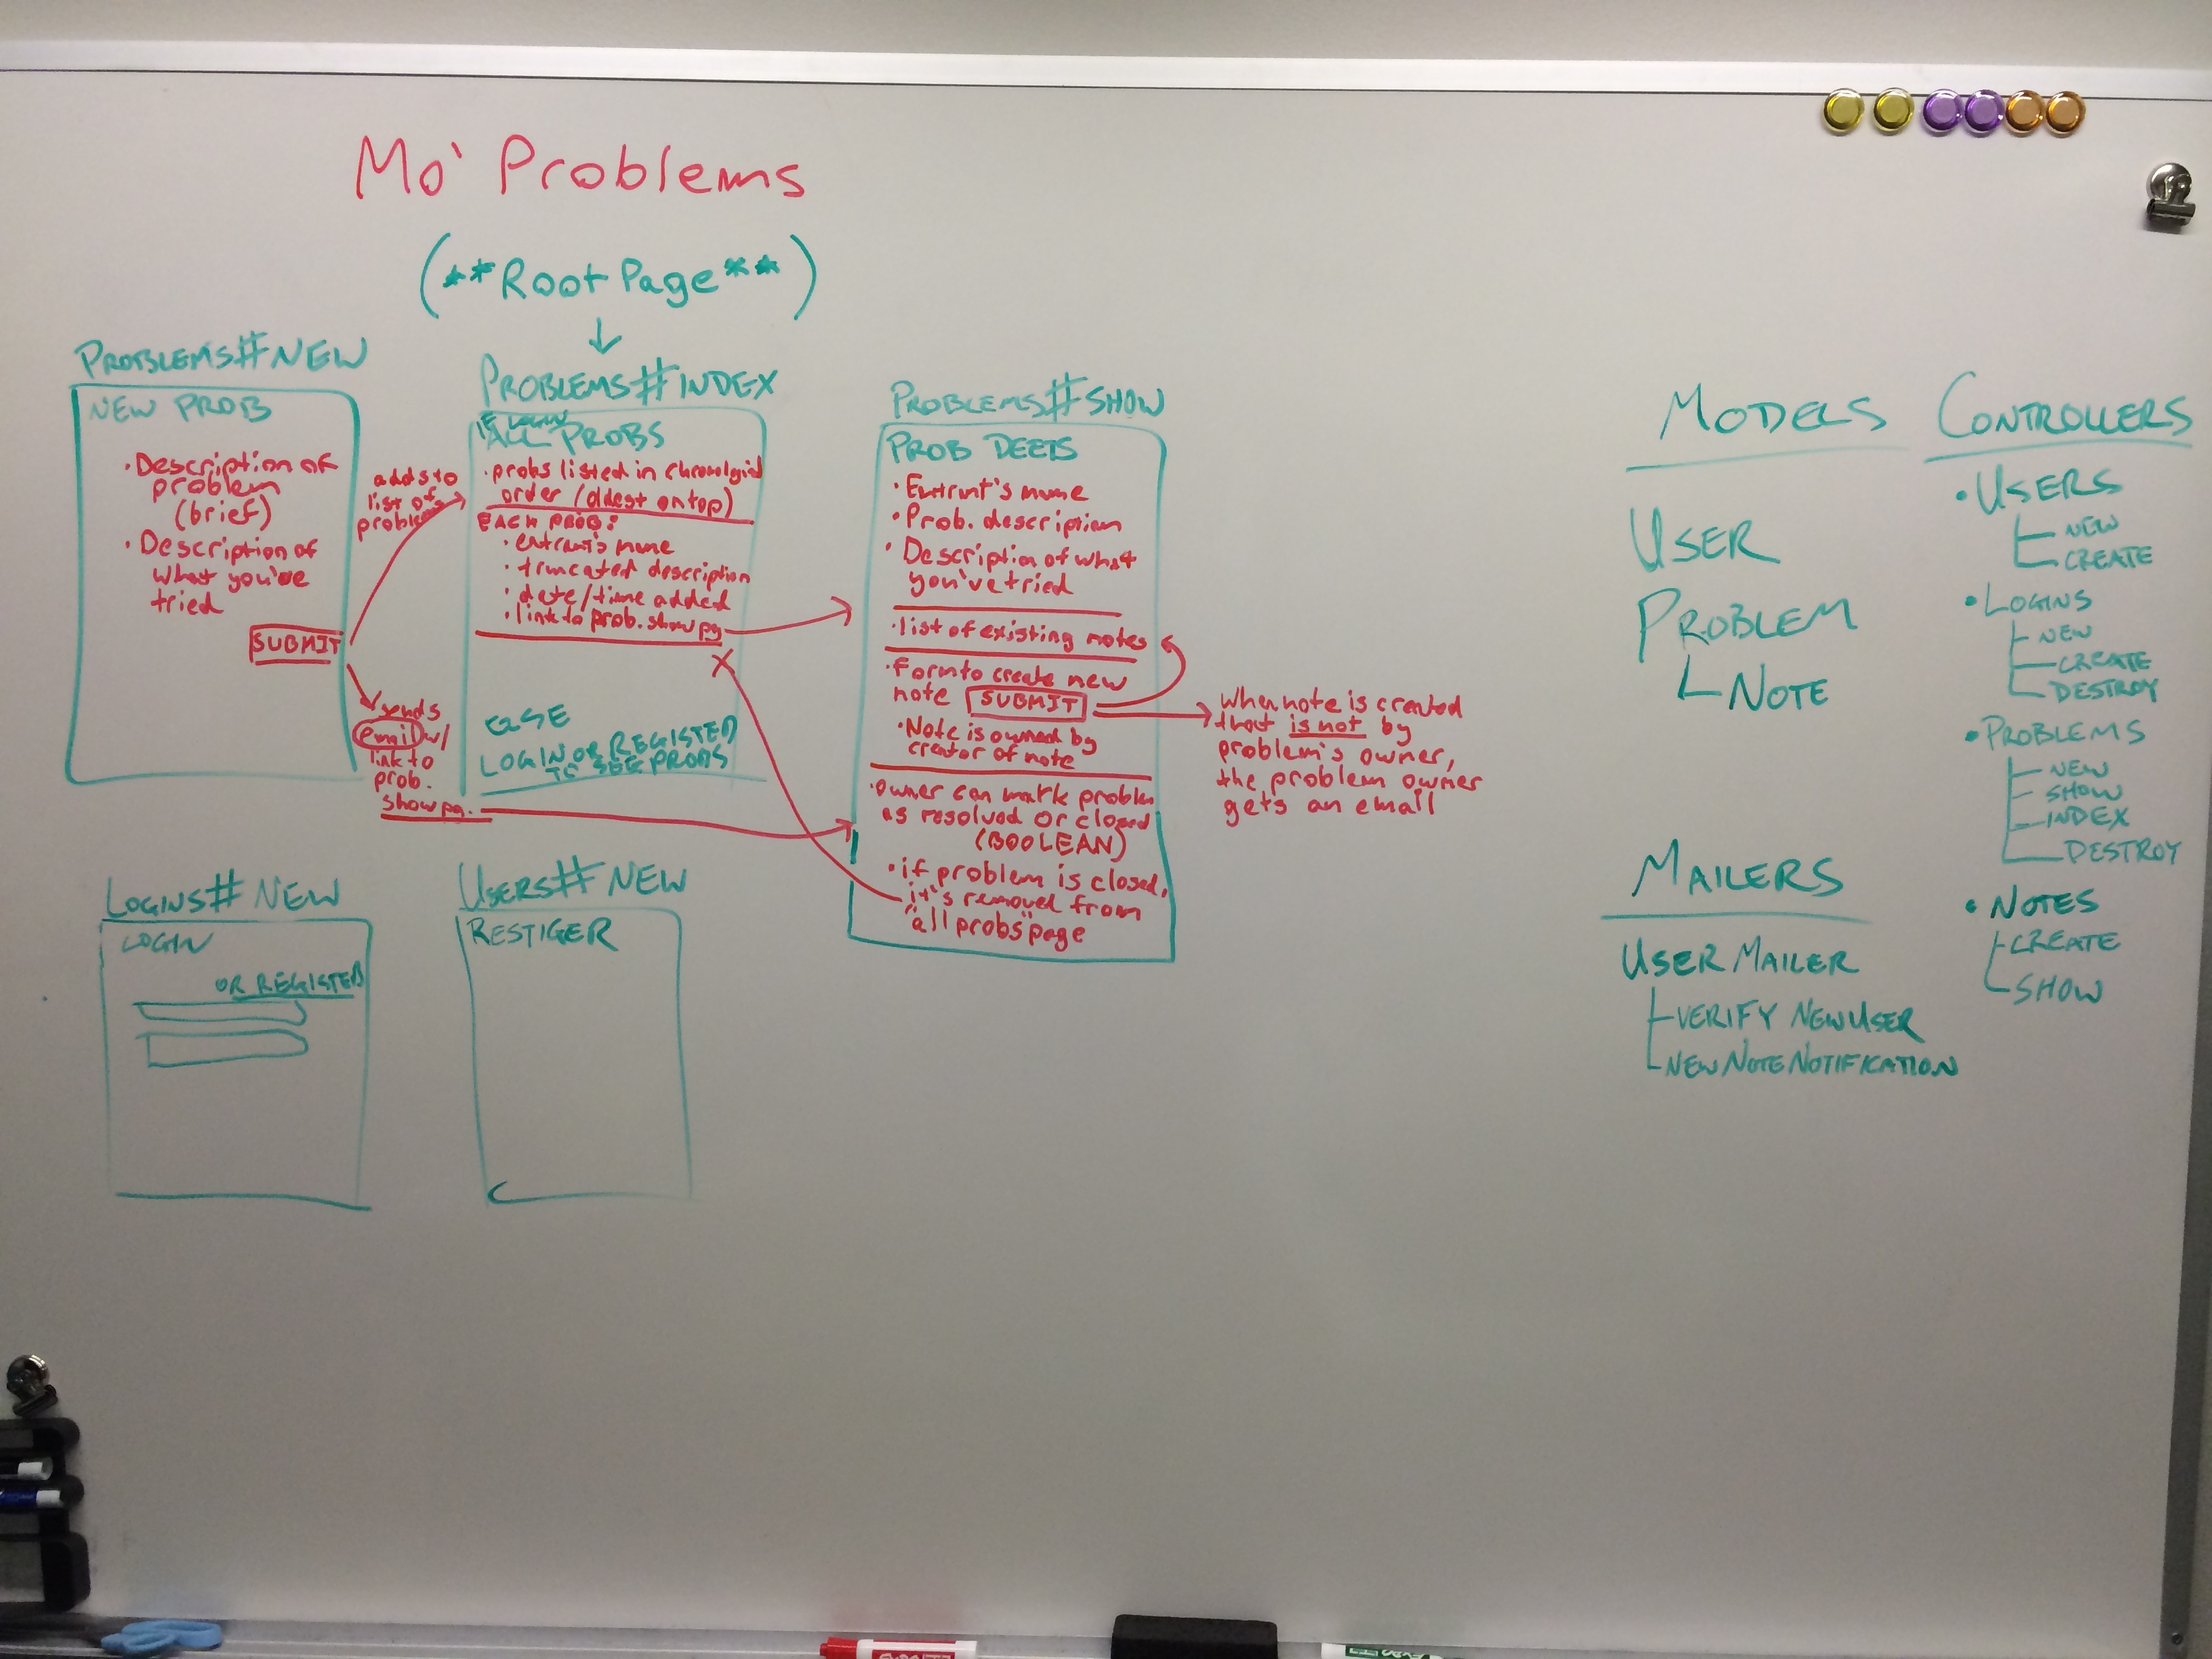 Mo' Problems
(**Root Page**)
PROBLEMS#NEW
NEW PROB
• Description of
problem
(brief)
• Description of
what you've
tried
SUBMIT
adds to
list of
problems
sends
email w/
link to
prob.
show pg.
PROBLEMS#INDEX
IF LOGIN
ALL PROBS
• probs listed in chronolgicl
order (oldest on top)
EACH PROB:
• entrant's name
• truncated description
• date/time added
• link to prob. show pg
X
ELSE
LOGIN OR REGISTER
TO SEE PROBS
PROBLEMS#SHOW
PROB DEETS
• Entrant's name
• Prob. description
• Description of what
you've tried
• list of existing notes
• Form to create new
note SUBMIT
• Note is owned by
creator of note
• owner can mark problem
as resolved or closed
(BOOLEAN)
• if problem is closed,
it's removed from
"all probs" page
When note is created
that is not by
problem's owner,
the problem owner
gets an email
LOGINS#NEW
LOGIN
OR REGISTER
USERS#NEW
RESTIGER
MODELS
USER
PROBLEM
NOTE
MAILERS
USER MAILER
VERIFY NEW USER
NEW NOTE NOTIFICATION
CONTROLLERS
• USERS
NEW
CREATE
• LOGINS
NEW
CREATE
DESTROY
• PROBLEMS
NEW
SHOW
INDEX
DESTROY
• NOTES
CREATE
SHOW